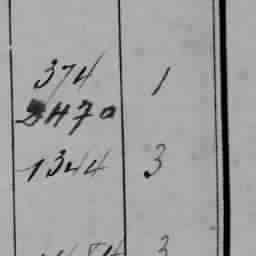 374 1
2470
1344 3
3